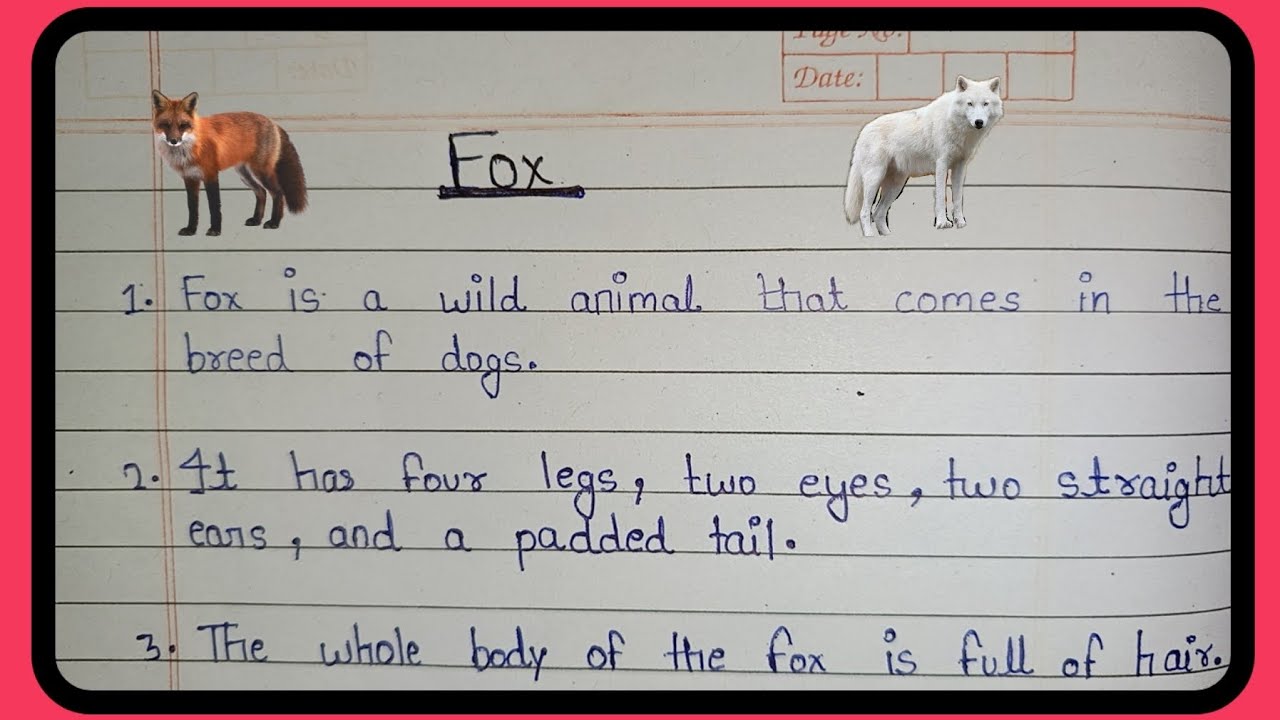 Page No.
Date:
Fox
1. Fox is a wild animal that comes in the
breed of dogs.
2. It has four legs, two eyes, two straight
ears, and a padded tail.
3. The whole body of the fox is full of hair.